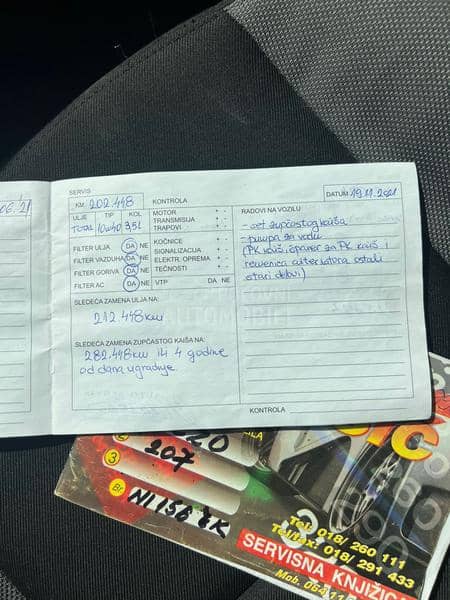 06.21
SERVIS
KM: 202.448 KONTROLA DATUM 19.11.2021
ULJE TIP KOL
TOTAL 10w40 3,5l
MOTOR + -
TRANSMISIJA + -
TRAPOVI + -
FILTER ULJA DA NE
FILTER VAZDUHA DA NE
FILTER GORIVA DA NE
FILTER AC DA NE
KOČNICE + -
SIGNALIZACIJA + -
ELEKTR. OPREMA + -
TEČNOSTI + -
VTP DA NE
SLEDEĆA ZAMENA ULJA NA:
212.448km
SLEDEĆA ZAMENA ZUPČASTOG KAIŠA NA:
282.448km ili 4 godine
od dana ugradnje.
RADOVI NA VOZILU
- set zupčastog kaiša
- pumpa za vodu
(PK kaiš, španer za PK kaiš i
remenica alternatora ostali
stari delovi)
KONTROLA
2
3
207
Br
NI 156
Tel: 018/ 260 111
Tel/fax: 018/ 291 433
SERVISNA KNJIŽICA
Mob. 064